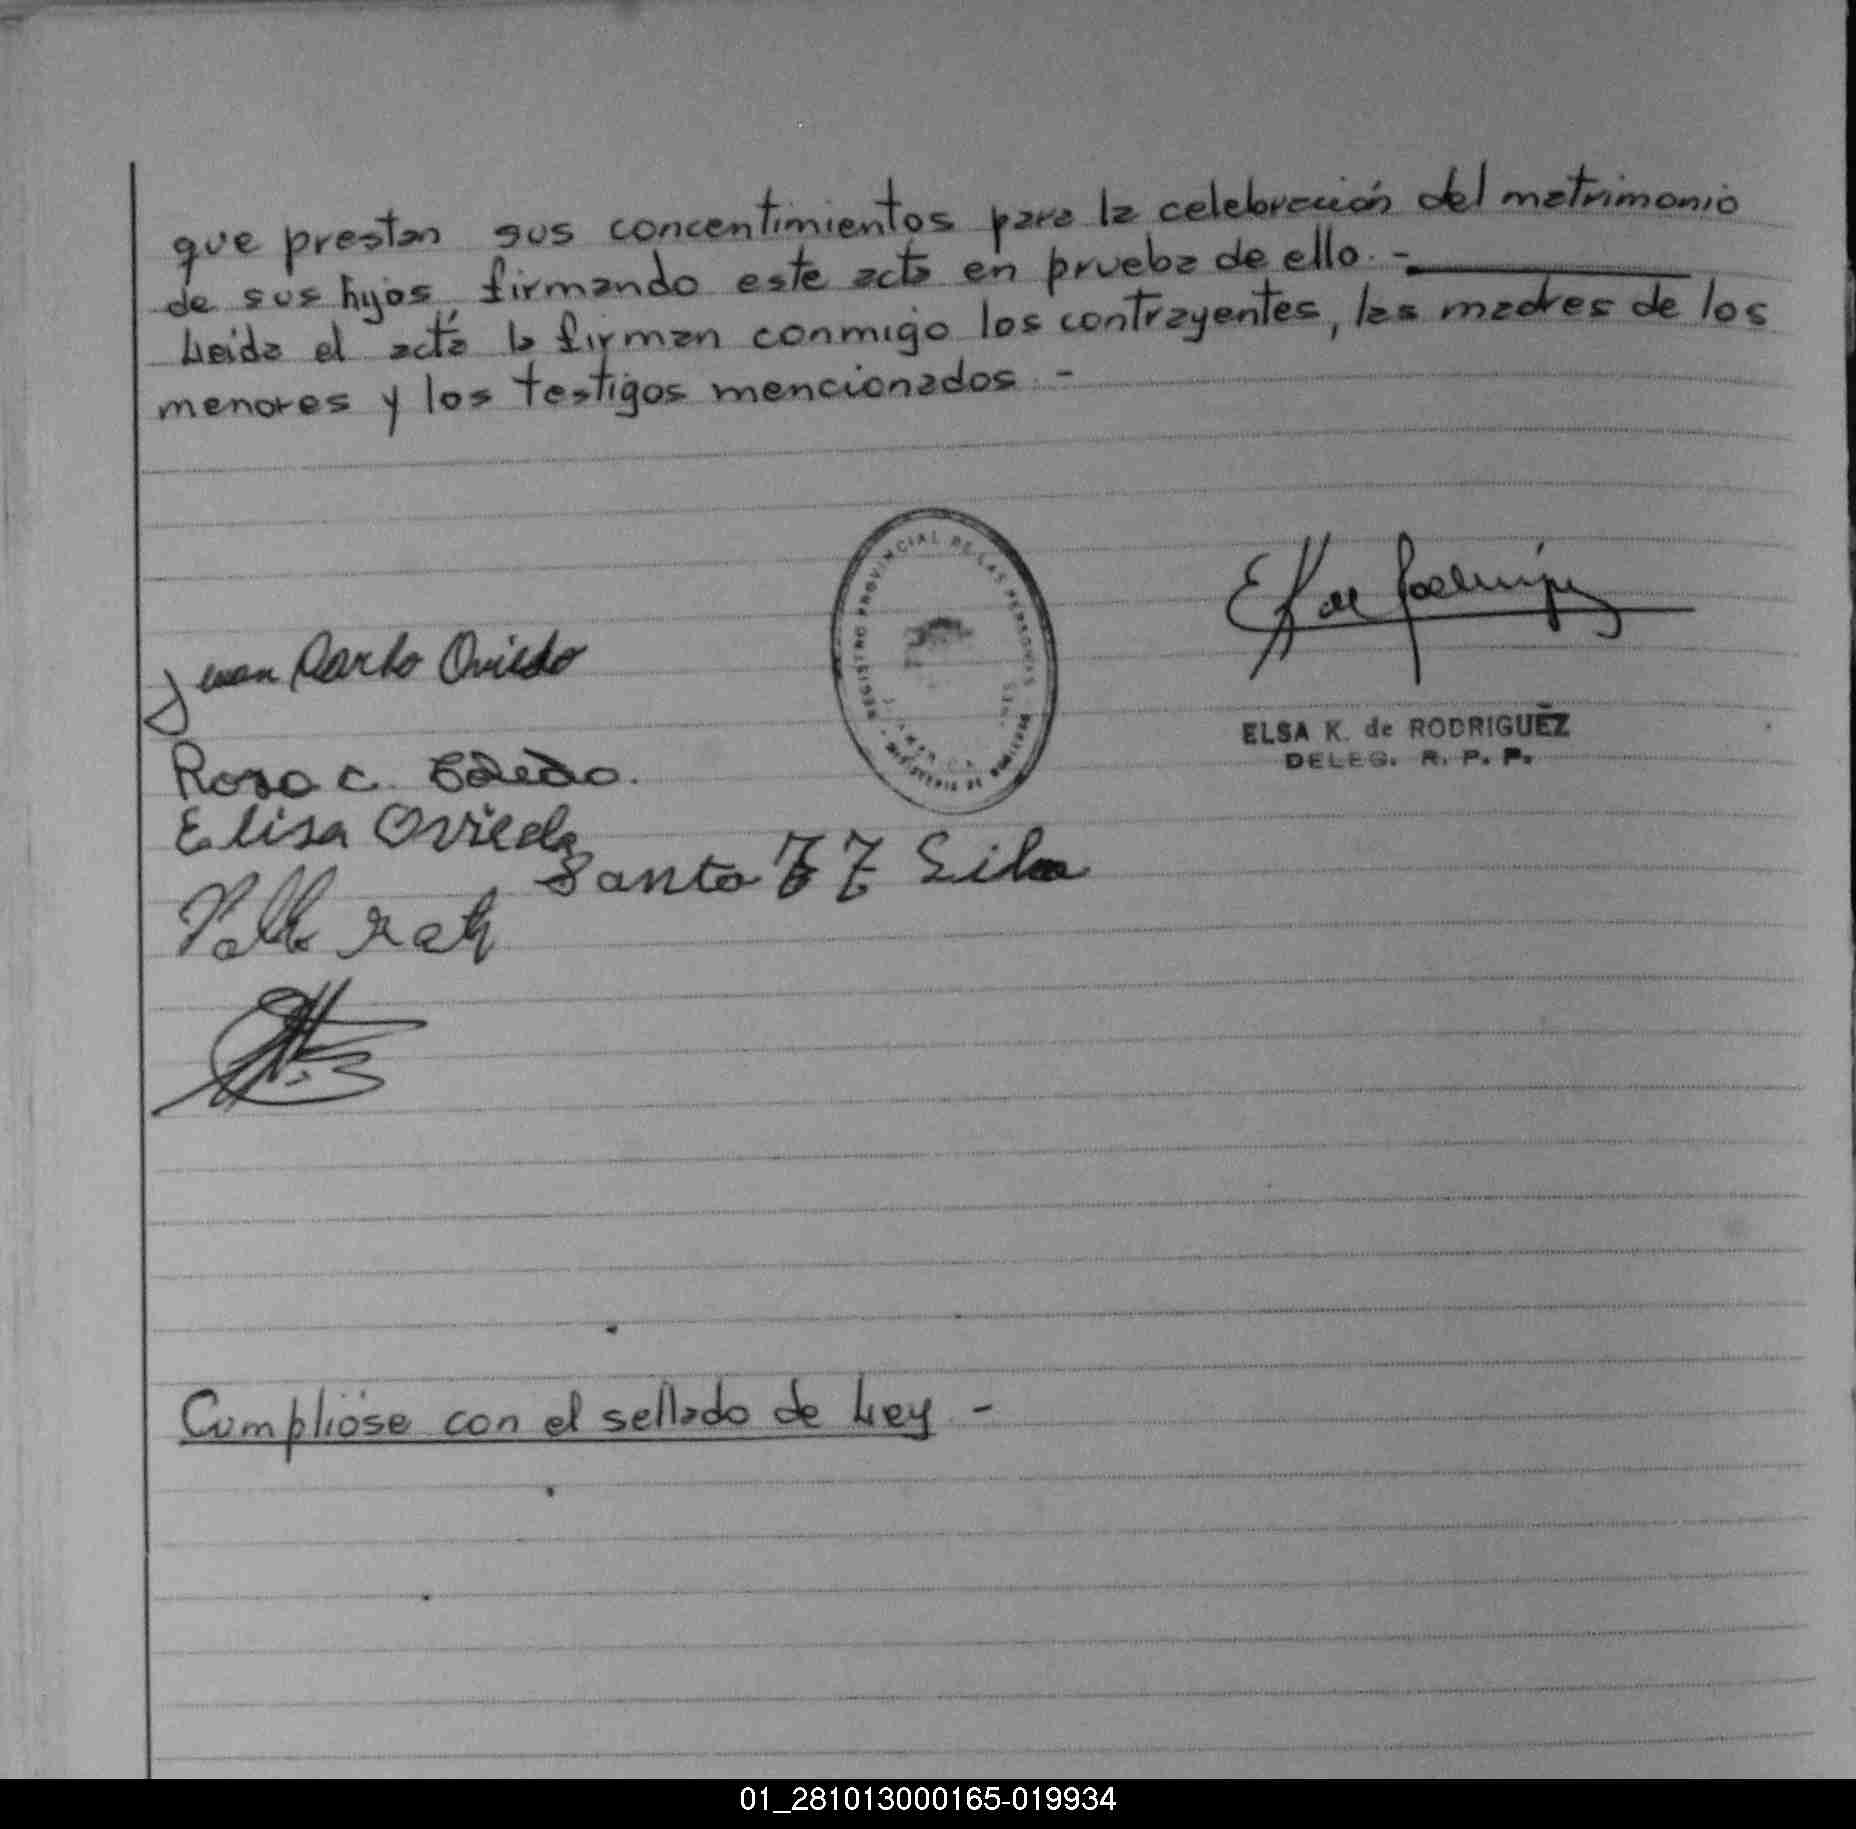 que prestan sus concentimientos para la celebración del matrimonio
de sus hijos, firmando este acta en prueba de ello. -
Leida el acta la firman conmigo los contrayentes, las madres de los
menores y los testigos mencionados. -
REGISTRO PROVINCIAL DE LAS PERSONAS
E K de Rodriguez
Juan Carlo Oviedo
ELSA K. de RODRIGUEZ
DELEG. R. P. P.
Rosa C.
Elisa Oviedo
Santo
Cumplióse con el sellado de Ley -
01_281013000165-019934